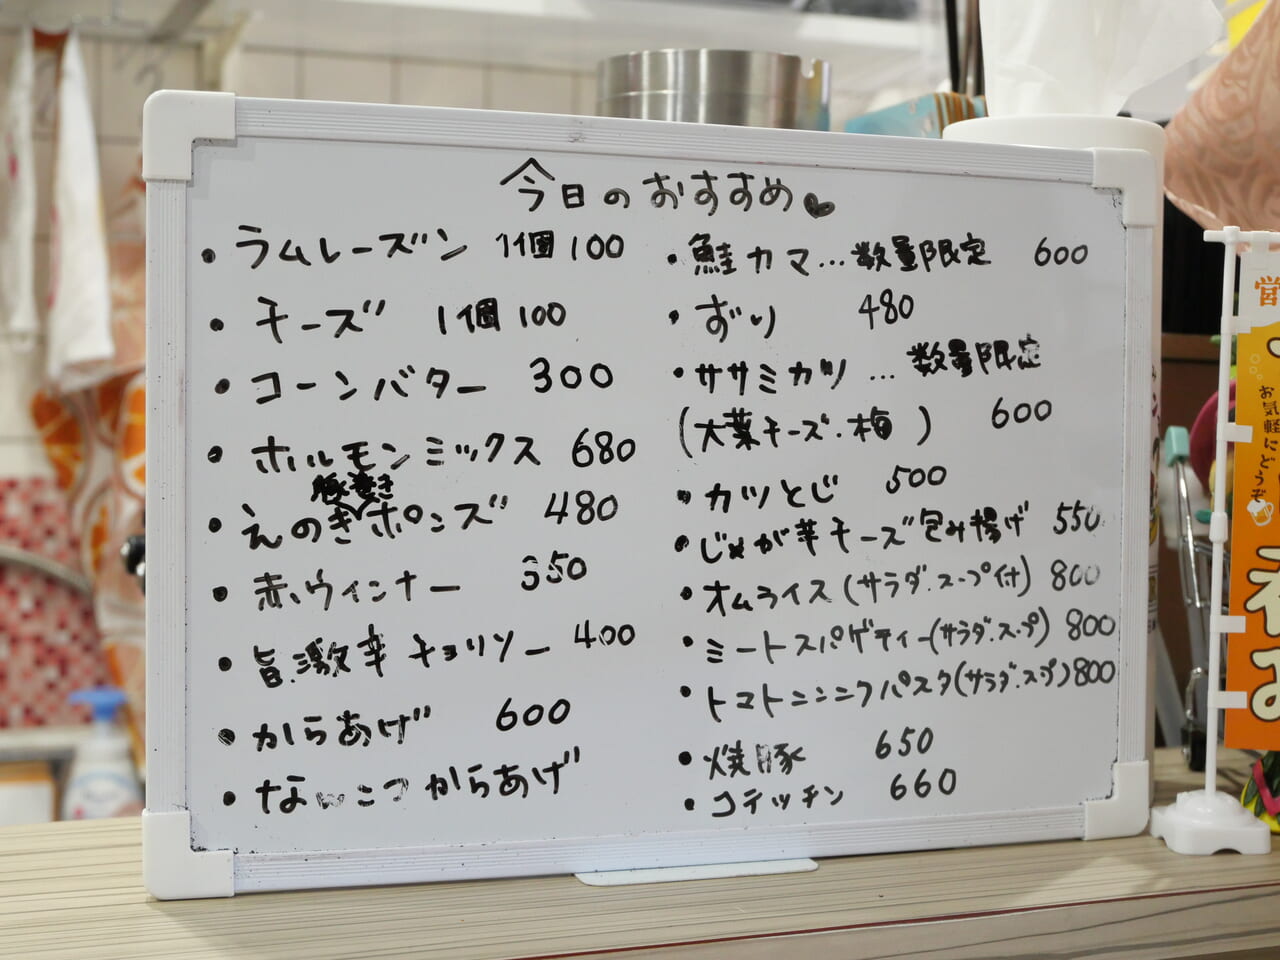 今日のおすすめ♥
・ラムレーズン 1個100
・チーズ 1個100
・コーンバター 300
・ホルモンミックス 680
豚巻き
・えのきポンズ 480
・赤ウィンナー 350
・旨.激辛チョリソー 400
・からあげ 600
・なんこつからあげ
・鮭カマ…数量限定 600
・ずり 480
・ササミカツ…数量限定
(大葉チーズ・梅) 600
・カツとじ 500
・じゃが芋チーズ包み揚げ 550
・オムライス(サラダ.スープ付) 800
・ミートスパゲティー(サラダ.スープ) 800
・トマトニンニクパスタ(サラダ.スープ) 800
・焼豚 650
・コテッチン 660
営
お気軽にどうぞ